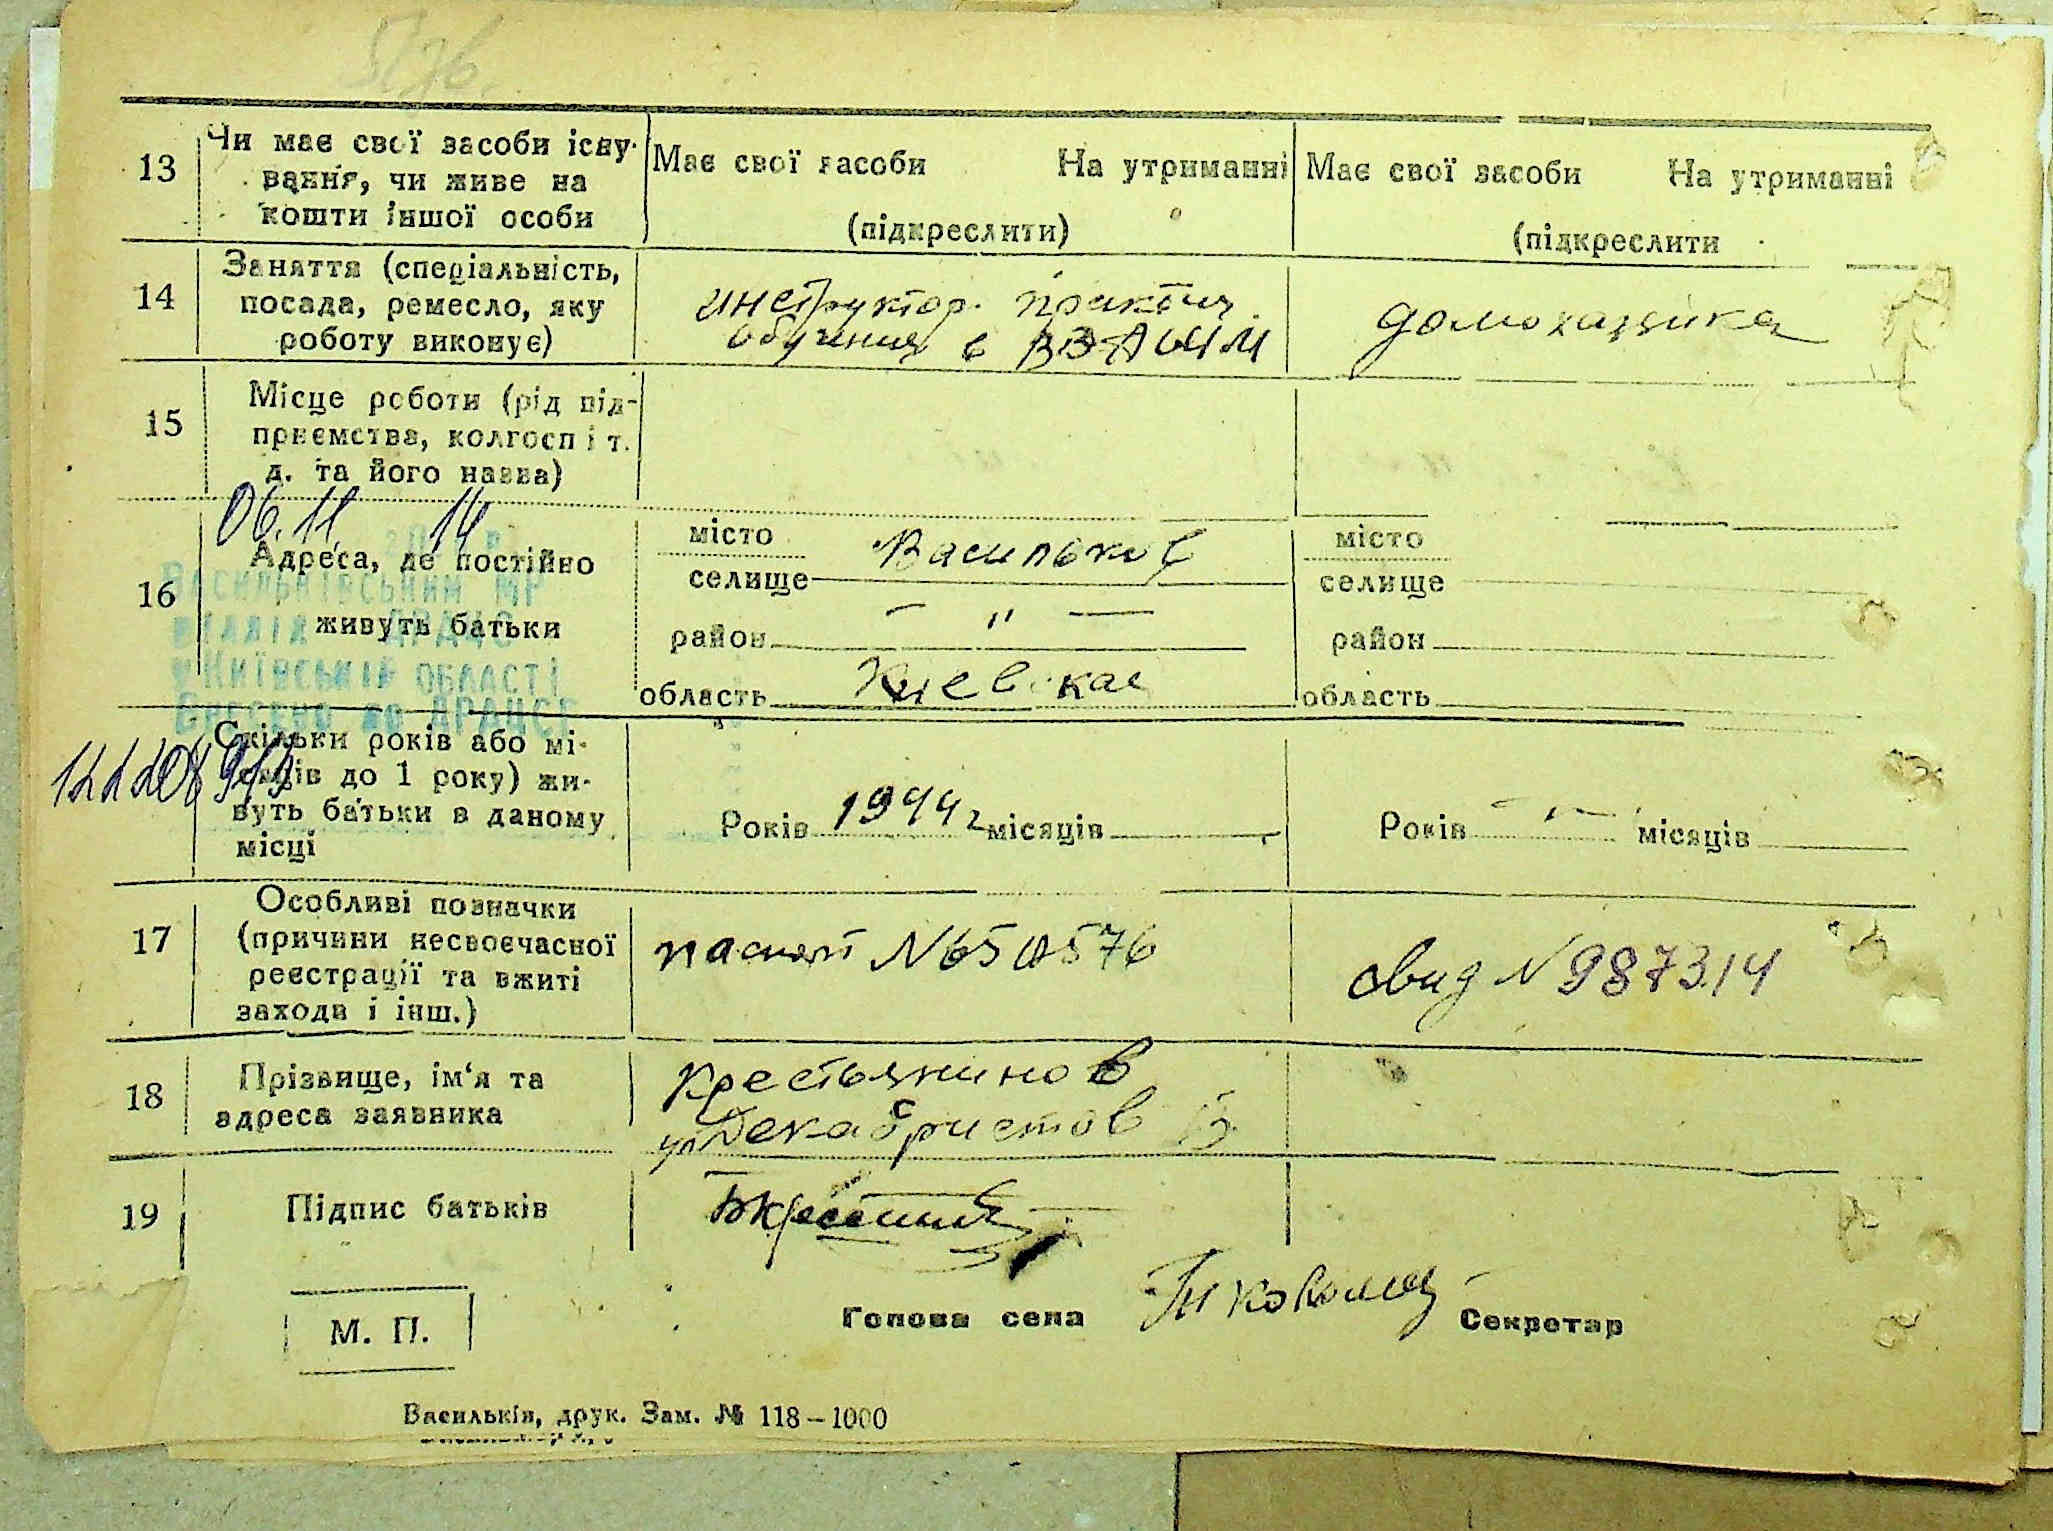 13
Чи має свої засоби існу-
вання, чи живе на
кошти іншої особи
Має свої засоби На утриманні
(підкреслити)
Має свої засоби На утриманні
(підкреслити
14
Заняття (спеціальність,
посада, ремесло, яку
роботу виконує)
инструктор. практич.
обучения в
домохазяйка
15
Місце роботи (рід під-
приємства, колгосп і т.
д. та його назва)
06.11. 14
16
Адреса, де постійно
живуть батьки
місто Васильков
селище
район — " —
область Киевская
місто
селище
район
область
Васильківським МР
відділ ДРАЦС
у Київській області
Внесено до ДРАЦСГ
Скільки років або мі-
сяців до 1 року) жи-
вуть батьки в даному
місці
Років 1944 г місяців
Років — " — місяців
17
Особливі позначки
(причини несвоєчасної
реєстрації та вжиті
заходи і інш.)
паспорт N 650576
свид N 987314
18
Прізвище, ім'я та
адреса заявника
Крестьянинов
ул Декабристов
19
Підпис батьків
М. П.
Голова села
Секретар
Васильків, друк. Зам. № 118–1000